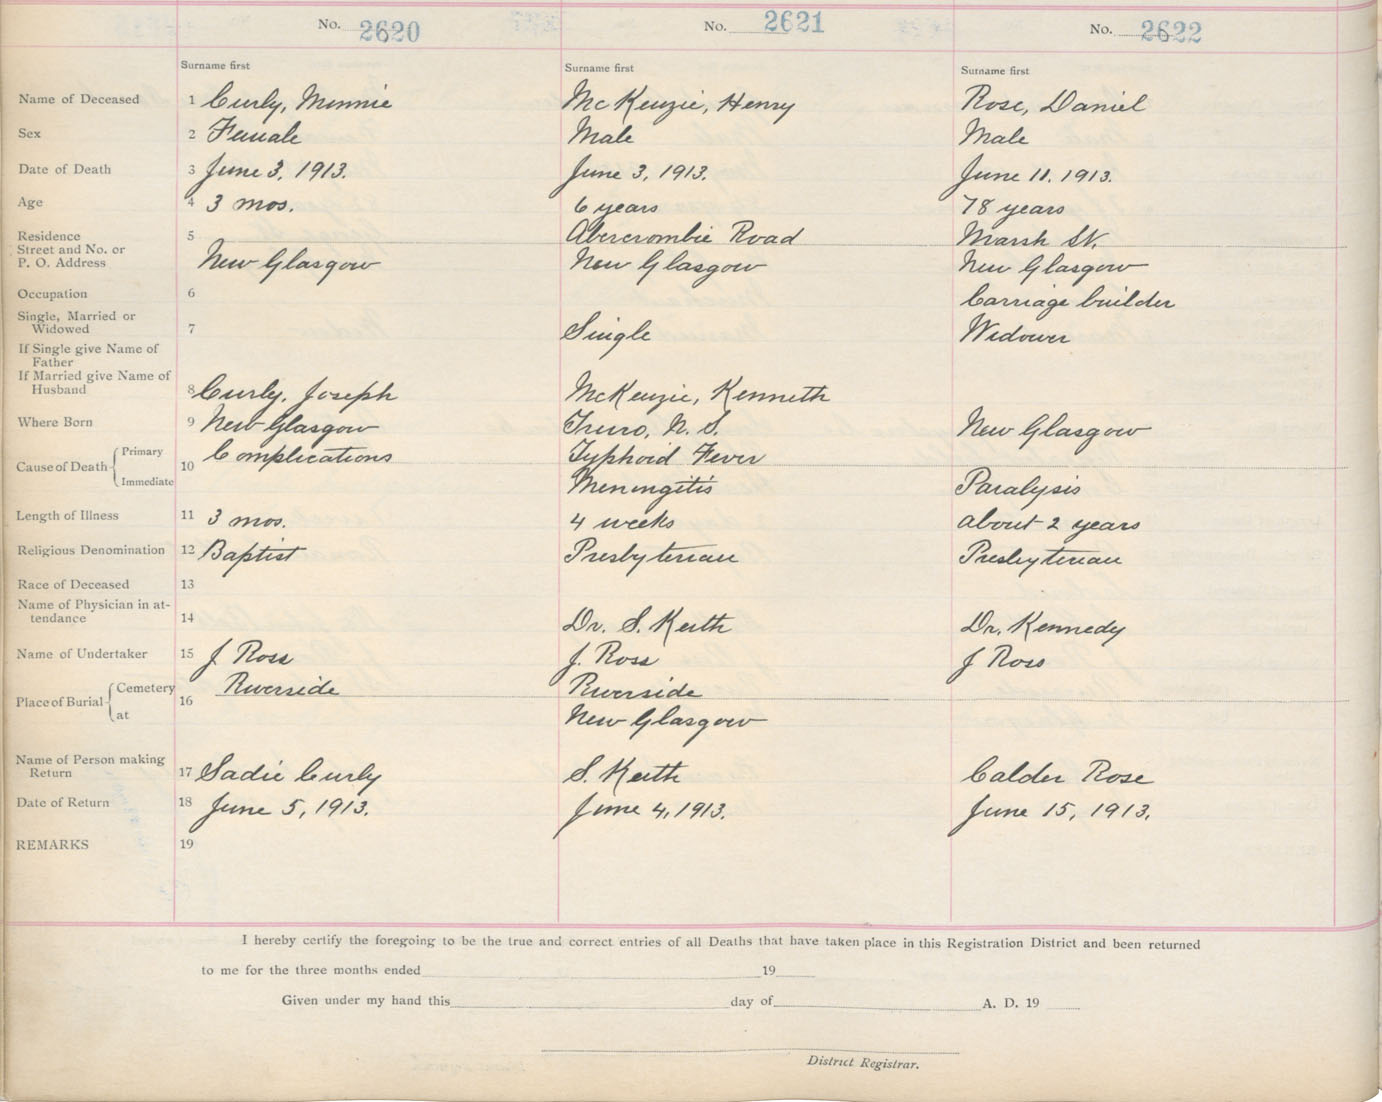 No. 2620 No. 2621 No. 2622
Surname first Surname first Surname first
Name of Deceased 1 Curly, Minnie McKenzie, Henry Rose, Daniel
Sex 2 Female Male Male
Date of Death 3 June 3, 1913. June 3, 1913. June 11, 1913.
Age 4 3 mos. 6 years 78 years
Residence 5 Abercrombie Road Marsh St.
Street and No. or
P. O. Address New Glasgow New Glasgow New Glasgow
Occupation 6 Carriage builder
Single, Married or
Widowed 7 Single Widower
If Single give Name of
Father
If Married give Name of
Husband 8 Curly, Joseph McKenzie, Kenneth
Where Born 9 New Glasgow Truro, N. S. New Glasgow
Cause of Death Primary 10 Complications Typhoid Fever
Immediate Meningitis Paralysis
Length of Illness 11 3 mos. 4 weeks about 2 years
Religious Denomination 12 Baptist Presbyterian Presbyterian
Race of Deceased 13
Name of Physician in at-
tendance 14 Dr. S. Keith Dr. Kennedy
Name of Undertaker 15 J Ross J. Ross J Ross
Place of Burial Cemetery 16 Riverside Riverside
at New Glasgow
Name of Person making
Return 17 Sadie Curly S. Keith Calder Rose
Date of Return 18 June 5, 1913. June 4, 1913. June 15, 1913.
REMARKS 19
I hereby certify the foregoing to be the true and correct entries of all Deaths that have taken place in this Registration District and been returned
to me for the three months ended 19
Given under my hand this day of A. D. 19
District Registrar.